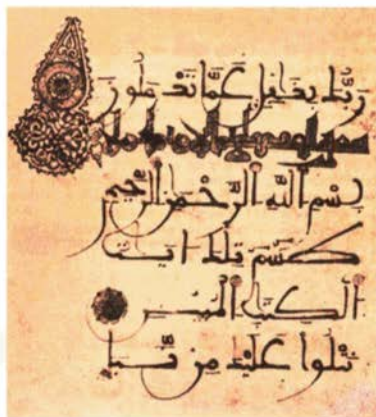 رَبُّكَ بِغَافِلٍ عَمَّا تَعْمَلُونَ
بِسْمِ ٱللَّهِ ٱلرَّحْمَٰنِ ٱلرَّحِيمِ
طسٓمٓ تِلْكَ ايَٰتُ
ٱلْكِتَٰبِ ٱلْمُبِينِ
نَتْلُوا عَلَيْكَ مِن نَّبَإِ